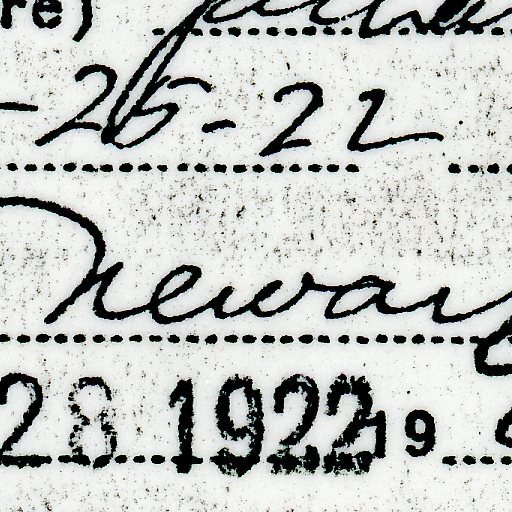 re)
-25-22
Newar
28 1922 19